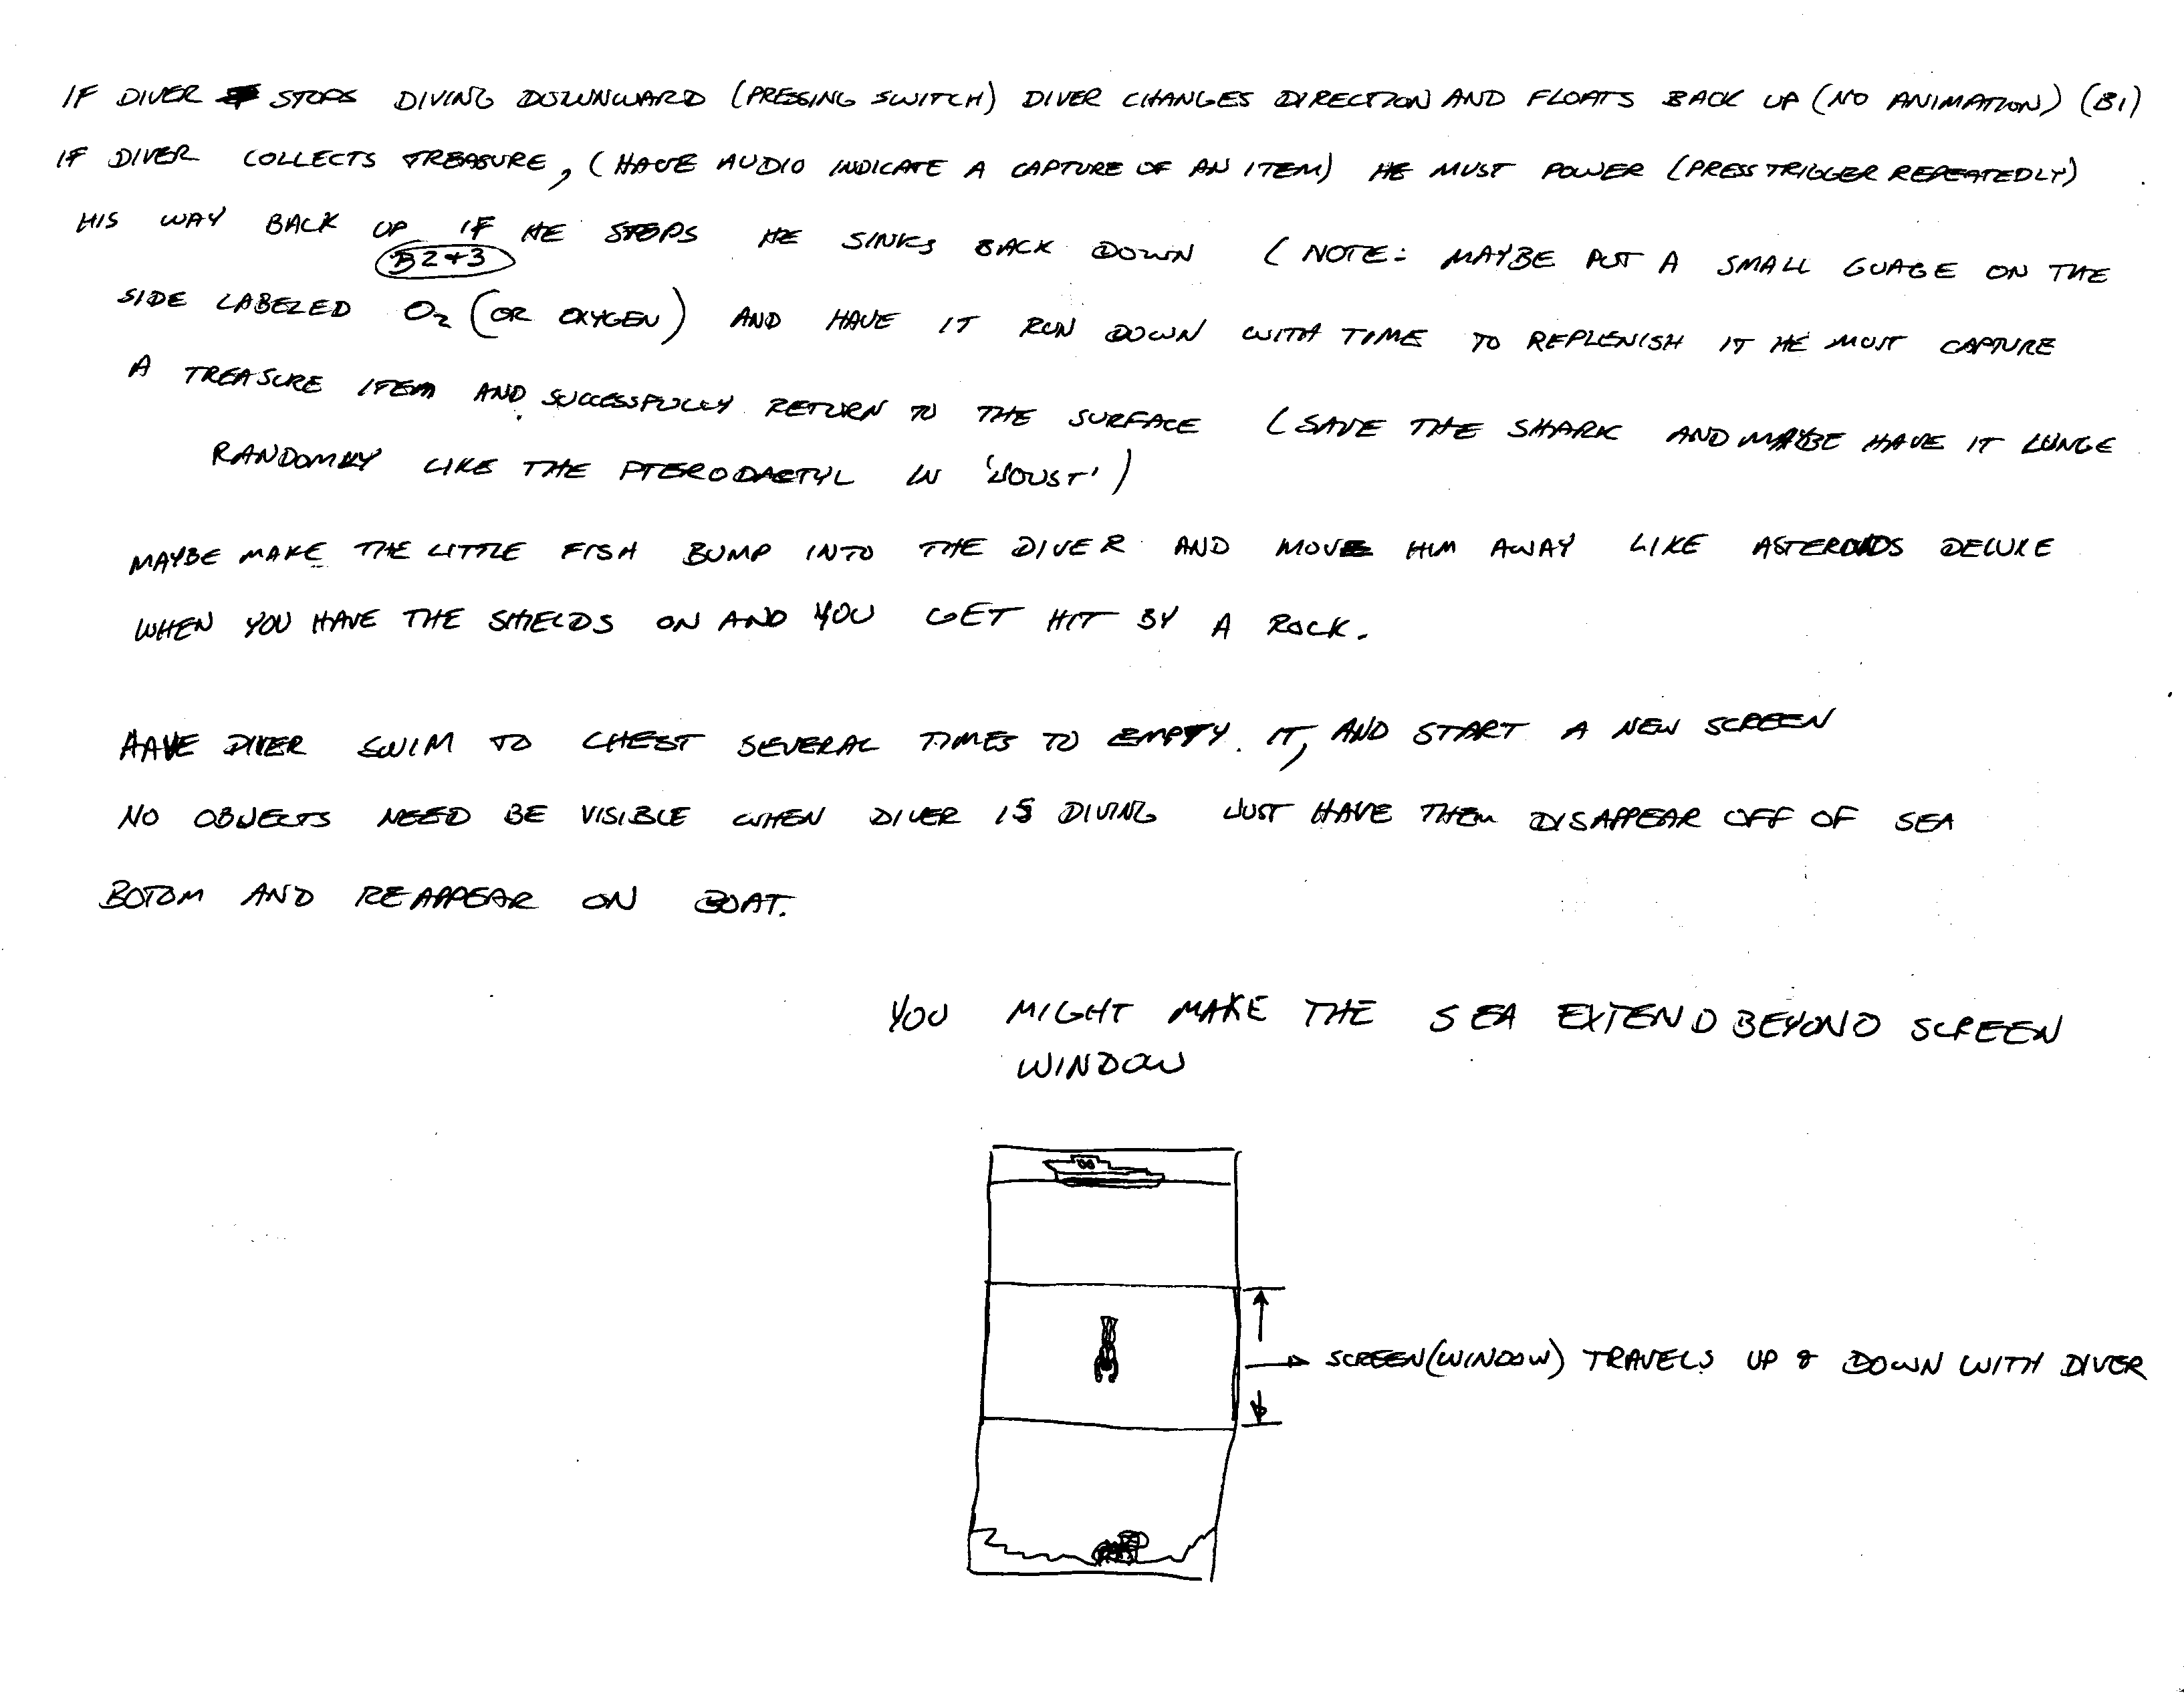 IF DIVER STOPS DIVING DOWNWARD (PRESSING SWITCH) DIVER CHANGES DIRECTION AND FLOATS BACK UP (NO ANIMATION) (B1)
IF DIVER COLLECTS TREASURE, (HAVE AUDIO INDICATE A CAPTURE OF AN ITEM) HE MUST POWER (PRESS TRIGGER REPEATEDLY)
HIS WAY BACK UP IF HE STOPS HE SINKS BACK DOWN (NOTE: MAYBE PUT A SMALL GUAGE ON THE
B2+3
SIDE LABELED O₂ (OR OXYGEN) AND HAVE IT RUN DOWN WITH TIME TO REPLENISH IT HE MUST CAPTURE
A TREASURE ITEM AND SUCCESSFULLY RETURN TO THE SURFACE (SAVE THE SHARK AND MAYBE HAVE IT LUNGE
RANDOMLY LIKE THE PTERODACTYL IN 'JOUST')
MAYBE MAKE THE LITTLE FISH BUMP INTO THE DIVER AND MOVE HIM AWAY LIKE ASTEROIDS DELUXE
WHEN YOU HAVE THE SHIELDS ON AND YOU GET HIT BY A ROCK.
HAVE DIVER SWIM TO CHEST SEVERAL TIMES TO EMPTY IT, AND START A NEW SCREEN
NO OBJECTS NEED BE VISIBLE WHEN DIVER IS DIVING JUST HAVE THEM DISAPPEAR OFF OF SEA
BOTOM AND REAPPEAR ON BOAT.
YOU MIGHT MAKE THE SEA EXTEND BEYOND SCREEN
WINDOW
SCREEN (WINDOW) TRAVELS UP & DOWN WITH DIVER